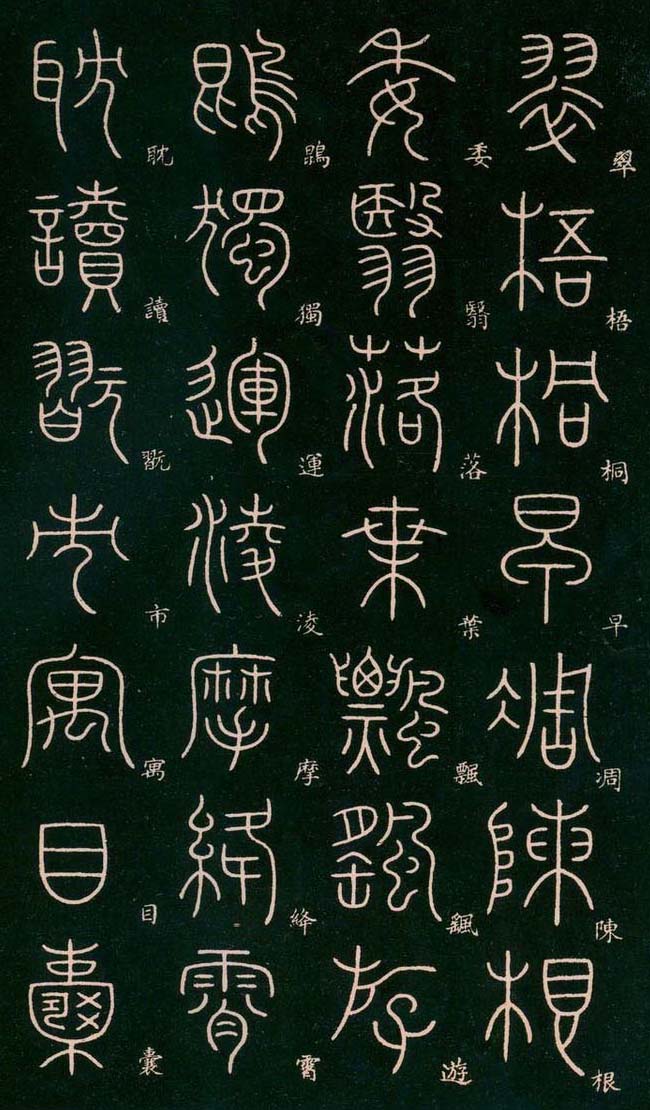 翠梧桐早凋陳根
委翳落葉飄颻遊
鵾獨運淩摩絳霄
耽讀翫市寓目囊